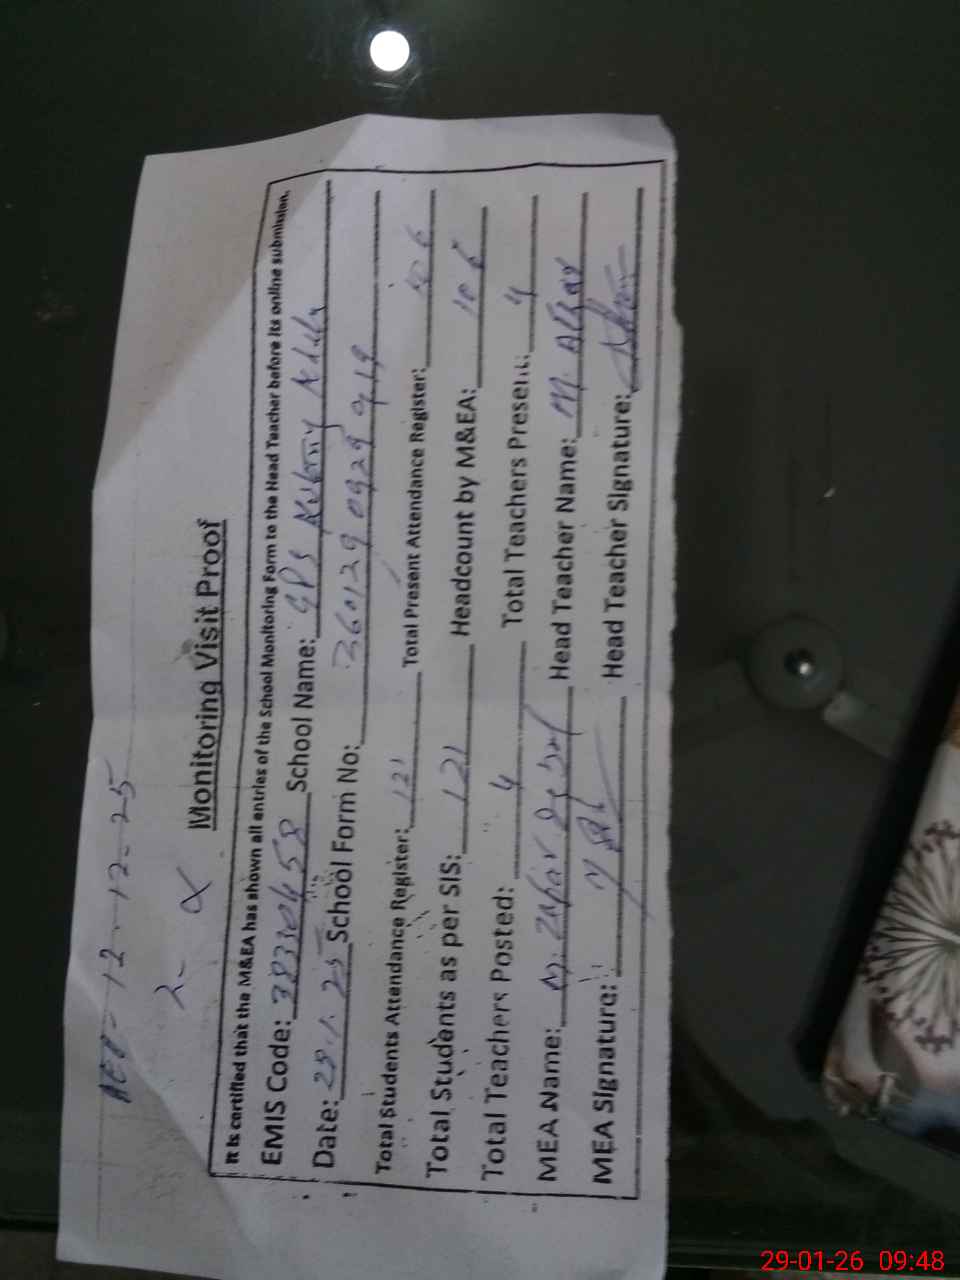 AEO - 12-12-25
2- α
Monitoring Visit Proof
It is certified that the M&EA has shown all entries of the School Monitoring Form to the Head Teacher before its online submission.
EMIS Code: 38330458 School Name: GPS
Date: 29.1.25 School Form No: 36012909290919
Total Students Attendance Register: 121 Total Present Attendance Register: 106
Total Students as per SIS: 121 Headcount by M&EA: 106
Total Teachers Posted: 4 Total Teachers Present: 4
MEA Name: M. Zafar Head Teacher Name: M. Afzal
MEA Signature: Head Teacher Signature:
29-01-26 09:48